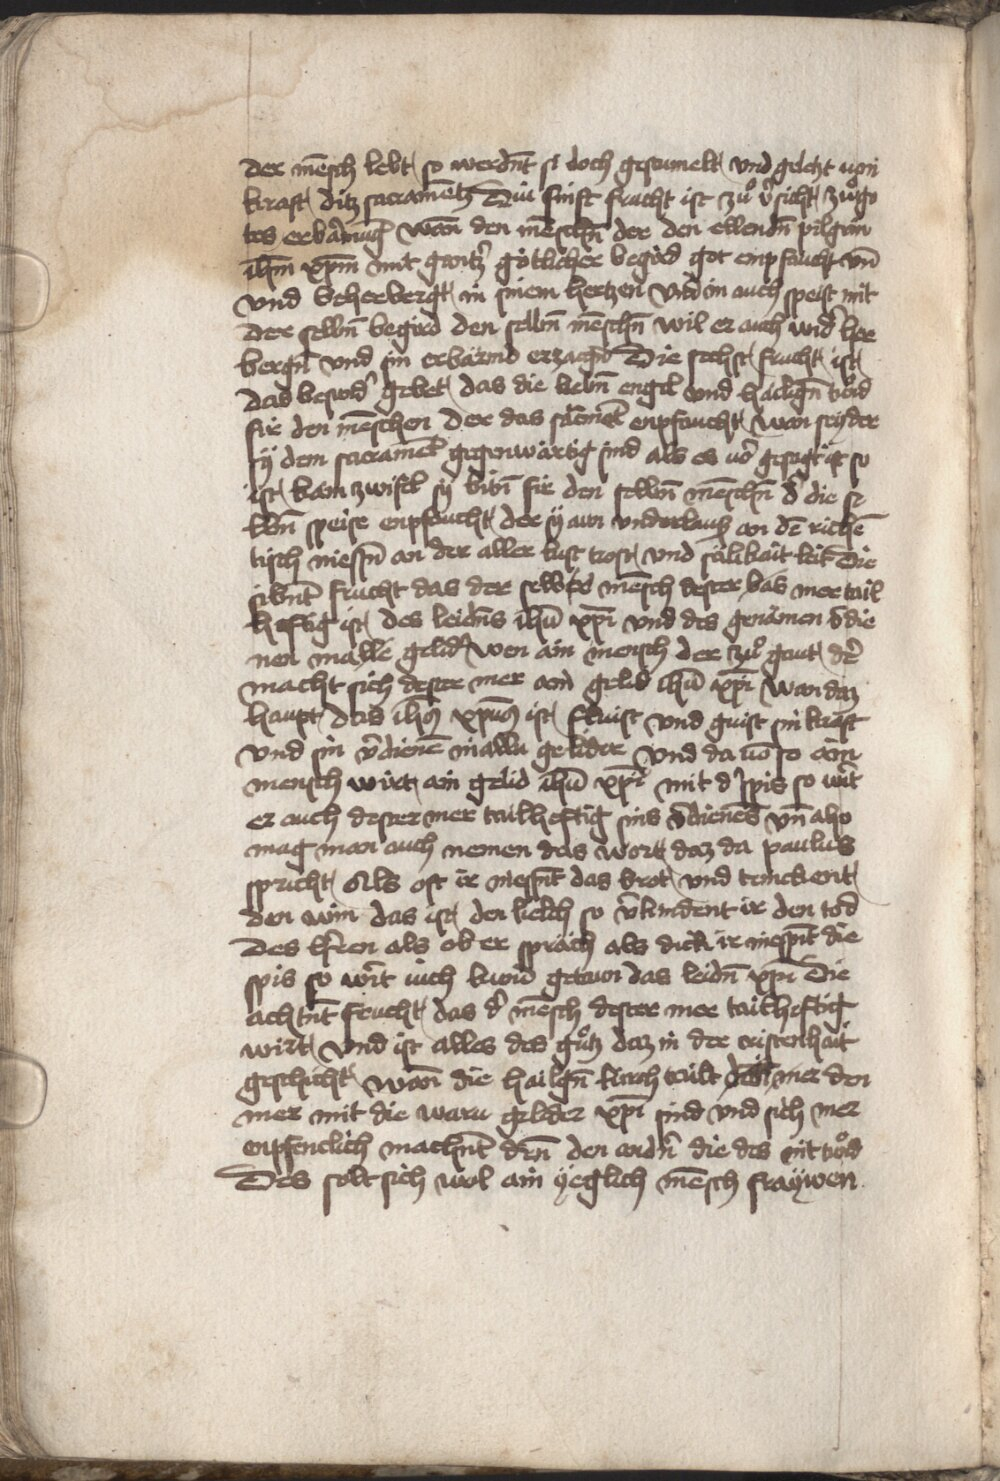 der mēsch lebt so werdnt si doch gesumelt und geletzt von
kraft ditz sacramētz Diu finft frucht ist zuͦ v̄sicht zuͦ go
tes erbarmūg wān den mēschn̄ der den ellendn̄ pilgrin
ih̄m xp̄m mit gantzˀ goͤtlicher begird got enpfaucht vn̄
und beherbergt in sinem hertzen und in auch speist mit
der selbn̄ begird den selbn̄ mēschn̄ wil er auch widˀ her
bergn̄ und sin erbaͤrmd erzaign̄ Die sechst frucht ist
das besundˀ gebet das die liebn̄ engel und hailign̄ tuͦnd
fir den mēschen der das sacmēt enpfaucht wan seyder
sy dem sacramēt gegenwaͤrtig sind als es vor gesagt ist so
ist kain zwifel sy bitn̄ fir den selbn̄ mēschn̄ dˀ die se
lbn̄ speise enpfaucht der sy aun underlausz an dē richē
tisch niessn̄ an der aller lust trost und saͤlikait leit Die
sibnt̄ frucht das der selb mēsch dester bas mer tail
heftig ist des leidns ih̄u xp̄i und des genamen v̄die
nen in alle gelid wen ain mensch der zuͦ gaut dˀ
macht sich dester mer ain gelid ih̄u xp̄i wan daz
haupt das ih̄us xp̄us ist fluist und guist sin kraft
und sin v̄dienē in allu gelider und da vō so ain
mensch wirt ain gelid ih̄u xp̄i mit dˀ spis so wirt
er auch dester mer tailheftig sins v̄dienēs vn̄ also
mag man auch nemen das wort daz da paulus
spricht Als oft ir niessn̄t das brot und trinckent
den win das ist den kelch so v̄kindent ir den tod
des hˀren als ob er spraͤch als dick ir niessn̄t die
spis so wirt iuch kund getaun das leidn̄ xp̄i Die
achtnt̄ frucht das dˀ mēsch dester mer tailheftig
wirt und ist alles des guͦtz daz in der cristenhait
geschicht wan̄ die hailign̄ kirch tailt mer den
mer mit die waru gelider xp̄i sind und sich mer
enpfenclich machn̄t den̄ den andn̄ die des nit tuͦnd
Des solt sich wol ain yeglich mēsch fraͤywen